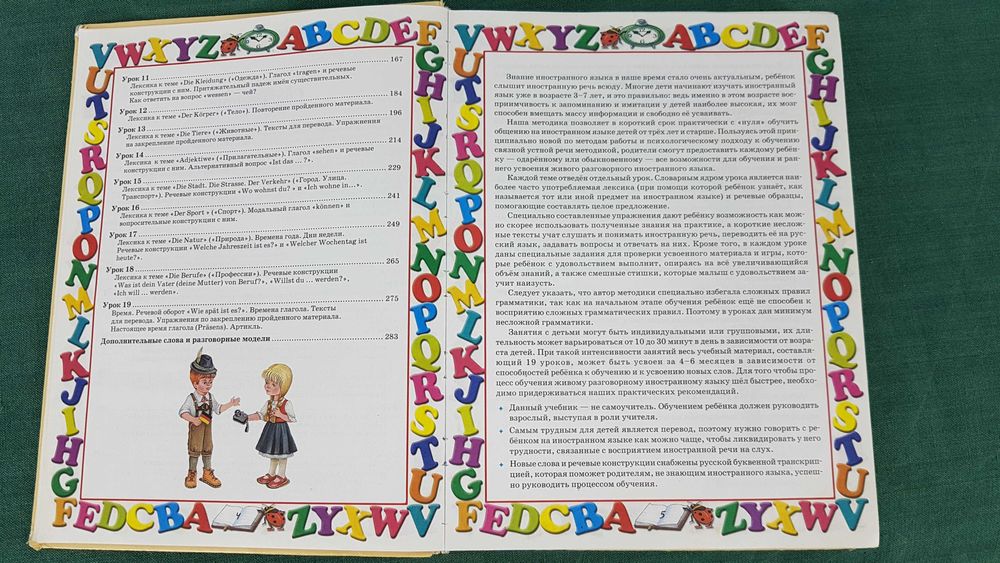 VWXYZ ABCDEF
UTSRQPONMLKJIHG
GHIJKLMNOPQRSTU
FEDCBA ZYXWV
Урок 11 167
Лексика к теме «Die Kleidung» («Одежда»). Глагол «tragen» и речевые
конструкции с ним. Притяжательный падеж имён существительных.
Как ответить на вопрос «wessen» — чей?
Урок 12 184
Лексика к теме «Der Körper» («Тело»). Повторение пройденного материала.
Урок 13 196
Лексика к теме «Die Tiere» («Животные»). Тексты для перевода. Упражнения
на закрепление пройденного материала.
Урок 14 214
Лексика к теме «Adjektiwe» («Прилагательные»). Глагол «sehen» и речевые
конструкции с ним. Альтернативный вопрос «Ist das ... ?».
Урок 15 229
Лексика к теме «Die Stadt. Die Strasse. Der Verkehr» («Город. Улица.
Транспорт»). Речевые конструкции «Wo wohnst du? » и «Ich wohne in...».
Урок 16 241
Лексика к теме «Der Sport » («Спорт»). Модальный глагол «können» и
вопросительные конструкции с ним.
Урок 17 249
Лексика к теме «Die Natur» («Природа»). Времена года. Дни недели.
Речевые конструкции «Welche Jahreszeit ist es?» и «Welcher Wochentag ist
heute?».
Урок 18 265
Лексика к теме «Die Berufe» («Профессии»). Речевые конструкции
«Was ist dein Vater (deine Mutter) von Beruf?», «Willst du ... werden?»,
«Ich will ... werden».
Урок 19 275
Время. Речевой оборот «Wie spät ist es?». Времена глагола. Тексты
для перевода. Упражнения по закреплению пройденного материала.
Настоящее время глагола (Präsens). Артикль.
Дополнительные слова и разговорные модели 283
4
VWXYZ ABCDEF
UTSRQPONMLKJIHG
GHIJKLMNOPQRSTU
FEDCBA ZYXWV
Знание иностранного языка в наше время стало очень актуальным, ребёнок
слышит иностранную речь всюду. Многие дети начинают изучать иностранный
язык уже в возрасте 3–7 лет, и это правильно: ведь именно в этом возрасте вос-
приимчивость к запоминанию и имитации у детей наиболее высокая, их мозг
способен вмещать массу информации и свободно её усваивать.
Наша методика позволяет в короткий срок практически с «нуля» обучить
общению на иностранном языке детей от трёх лет и старше. Пользуясь этой прин-
ципиально новой по методам работы и психологическому подходу к обучению
связной устной речи методикой, родители смогут предоставить каждому ребён-
ку — одарённому или обыкновенному — все возможности для обучения и ран-
него усвоения живого разговорного иностранного языка.
Каждой теме отведён отдельный урок. Словарным ядром урока является наи-
более часто употребляемая лексика (при помощи которой ребёнок узнаёт, как
называется тот или иной предмет на иностранном языке) и речевые образцы,
помогающие составлять целое предложение.
Специально составленные упражнения дают ребёнку возможность как мож-
но скорее использовать полученные знания на практике, а короткие неслож-
ные тексты учат слушать и понимать иностранную речь, переводить её на рус-
ский язык, задавать вопросы и отвечать на них. Кроме того, в каждом уроке
даны специальные задания для проверки усвоения материала и игры, кото-
рые ребёнок с удовольствием выполнит, опираясь на всё увеличивающийся
объём знаний, а также смешные стишки, которые малыш с удовольствием за-
учит наизусть.
Следует указать, что автор методики специально избегала сложных правил
грамматики, так как на начальном этапе обучения ребёнок ещё не способен к
восприятию сложных грамматических правил. Поэтому в уроках дан минимум
несложной грамматики.
Занятия с детьми могут быть индивидуальными или групповыми, их дли-
тельность может варьироваться от 10 до 30 минут в день в зависимости от возра-
ста детей. При такой интенсивности занятий весь учебный материал, составля-
ющий 19 уроков, может быть усвоен за 4–6 месяцев в зависимости от
способностей ребёнка к обучению и к усвоению новых слов. Для того чтобы про-
цесс обучения живому разговорному иностранному языку шёл быстрее, необхо-
димо придерживаться наших практических рекомендаций.
Данный учебник — не самоучитель. Обучением ребёнка должен руководить
взрослый, выступая в роли учителя.
Самым трудным для детей является перевод, поэтому нужно говорить с ре-
бёнком на иностранном языке как можно чаще, чтобы ликвидировать у него
трудности, связанные с восприятием иностранной речи на слух.
Новые слова и речевые конструкции снабжены русской буквенной транскрип-
цией, которая поможет родителям, не знающим иностранного языка, успеш-
но руководить процессом обучения.
5